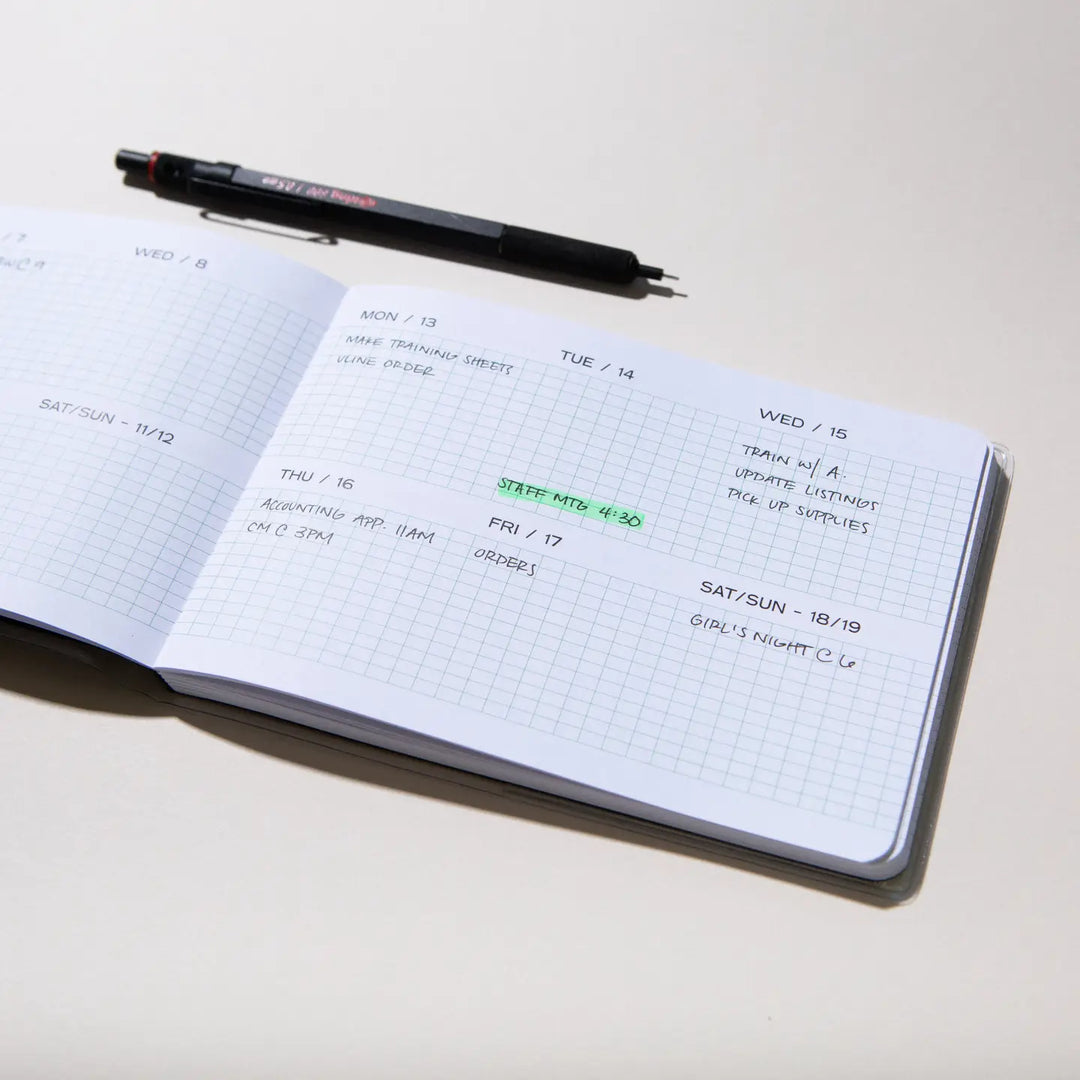 / 7
WED / 8
SAT/SUN - 11/12
MON / 13
MAKE TRAINING SHEETS
ULINE ORDER
TUE / 14
STAFF MTG 4:30
WED / 15
TRAIN W/ A.
UPDATE LISTINGS
PICK UP SUPPLIES
THU / 16
ACCOUNTING APP. 11AM
CM @ 3PM
FRI / 17
ORDERS
SAT/SUN - 18/19
GIRL'S NIGHT @ 6